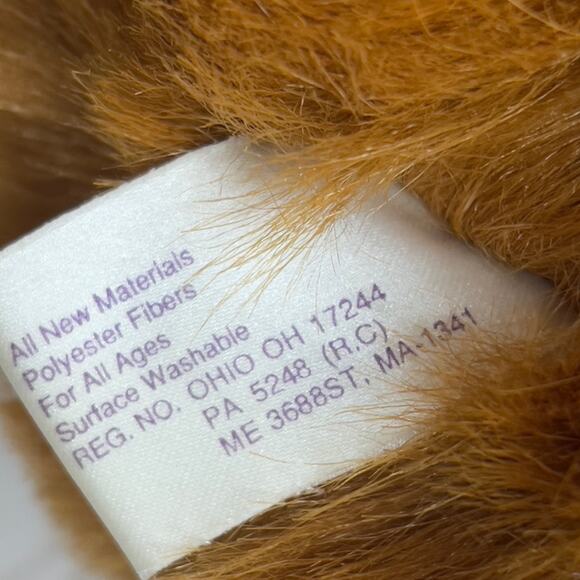 All New Materials
Polyester Fibers
For All Ages
Surface Washable
REG. NO. OHIO OH 17244
PA 5248 (R.C)
ME 3688ST, MA-1341